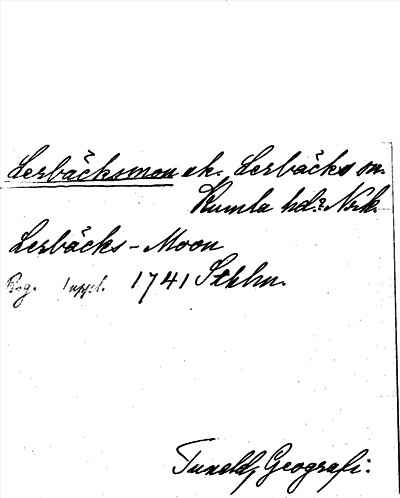 Lerbäcksmon sk. Lerbäcks sn.
Kumla hd: Nrk.
Lerbäcks-Moon
Reg. Uppl. 1741 Sthlm.
Tuneld, Geografi: